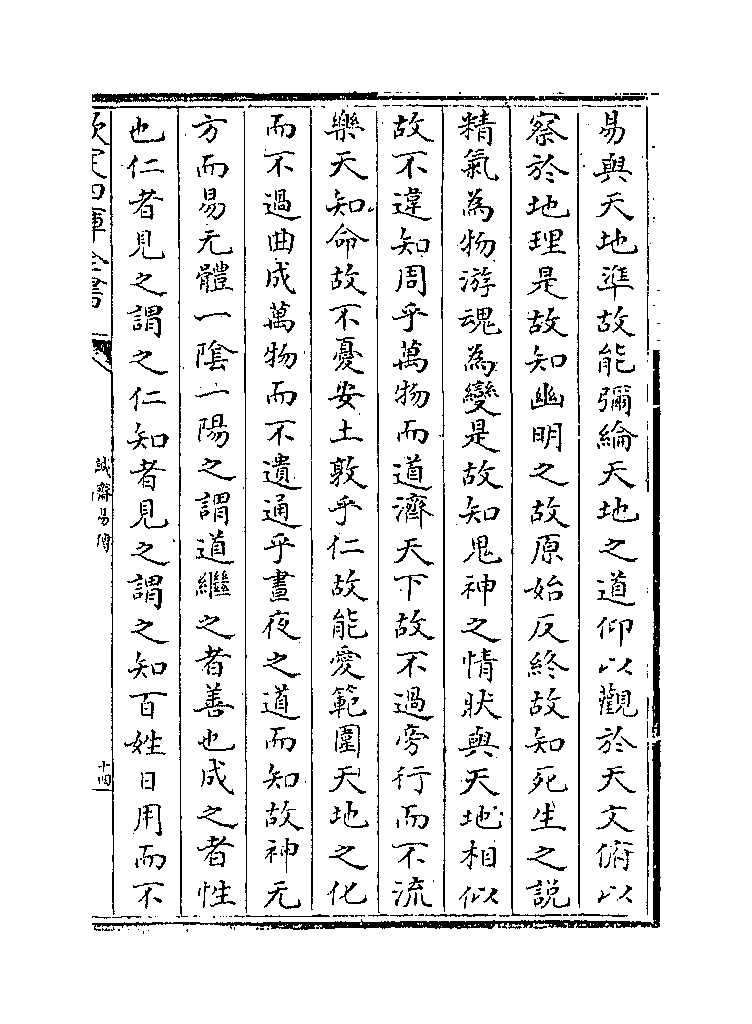 易與天地準故能彌綸天地之道仰以觀於天文俯以
察於地理是故知幽明之故原始反終故知死生之説
精氣為物游魂為變是故知鬼神之情狀與天地相似
故不違知周乎萬物而道濟天下故不過旁行而不流
樂天知命故不憂安土敦乎仁故能愛範圍天地之化
而不過曲成萬物而不遺通乎晝夜之道而知故神无
方而易无體一陰一陽之謂道繼之者善也成之者性
也仁者見之謂之仁知者見之謂之知百姓日用而不
欽定四庫全書
誠齋易傳
十四